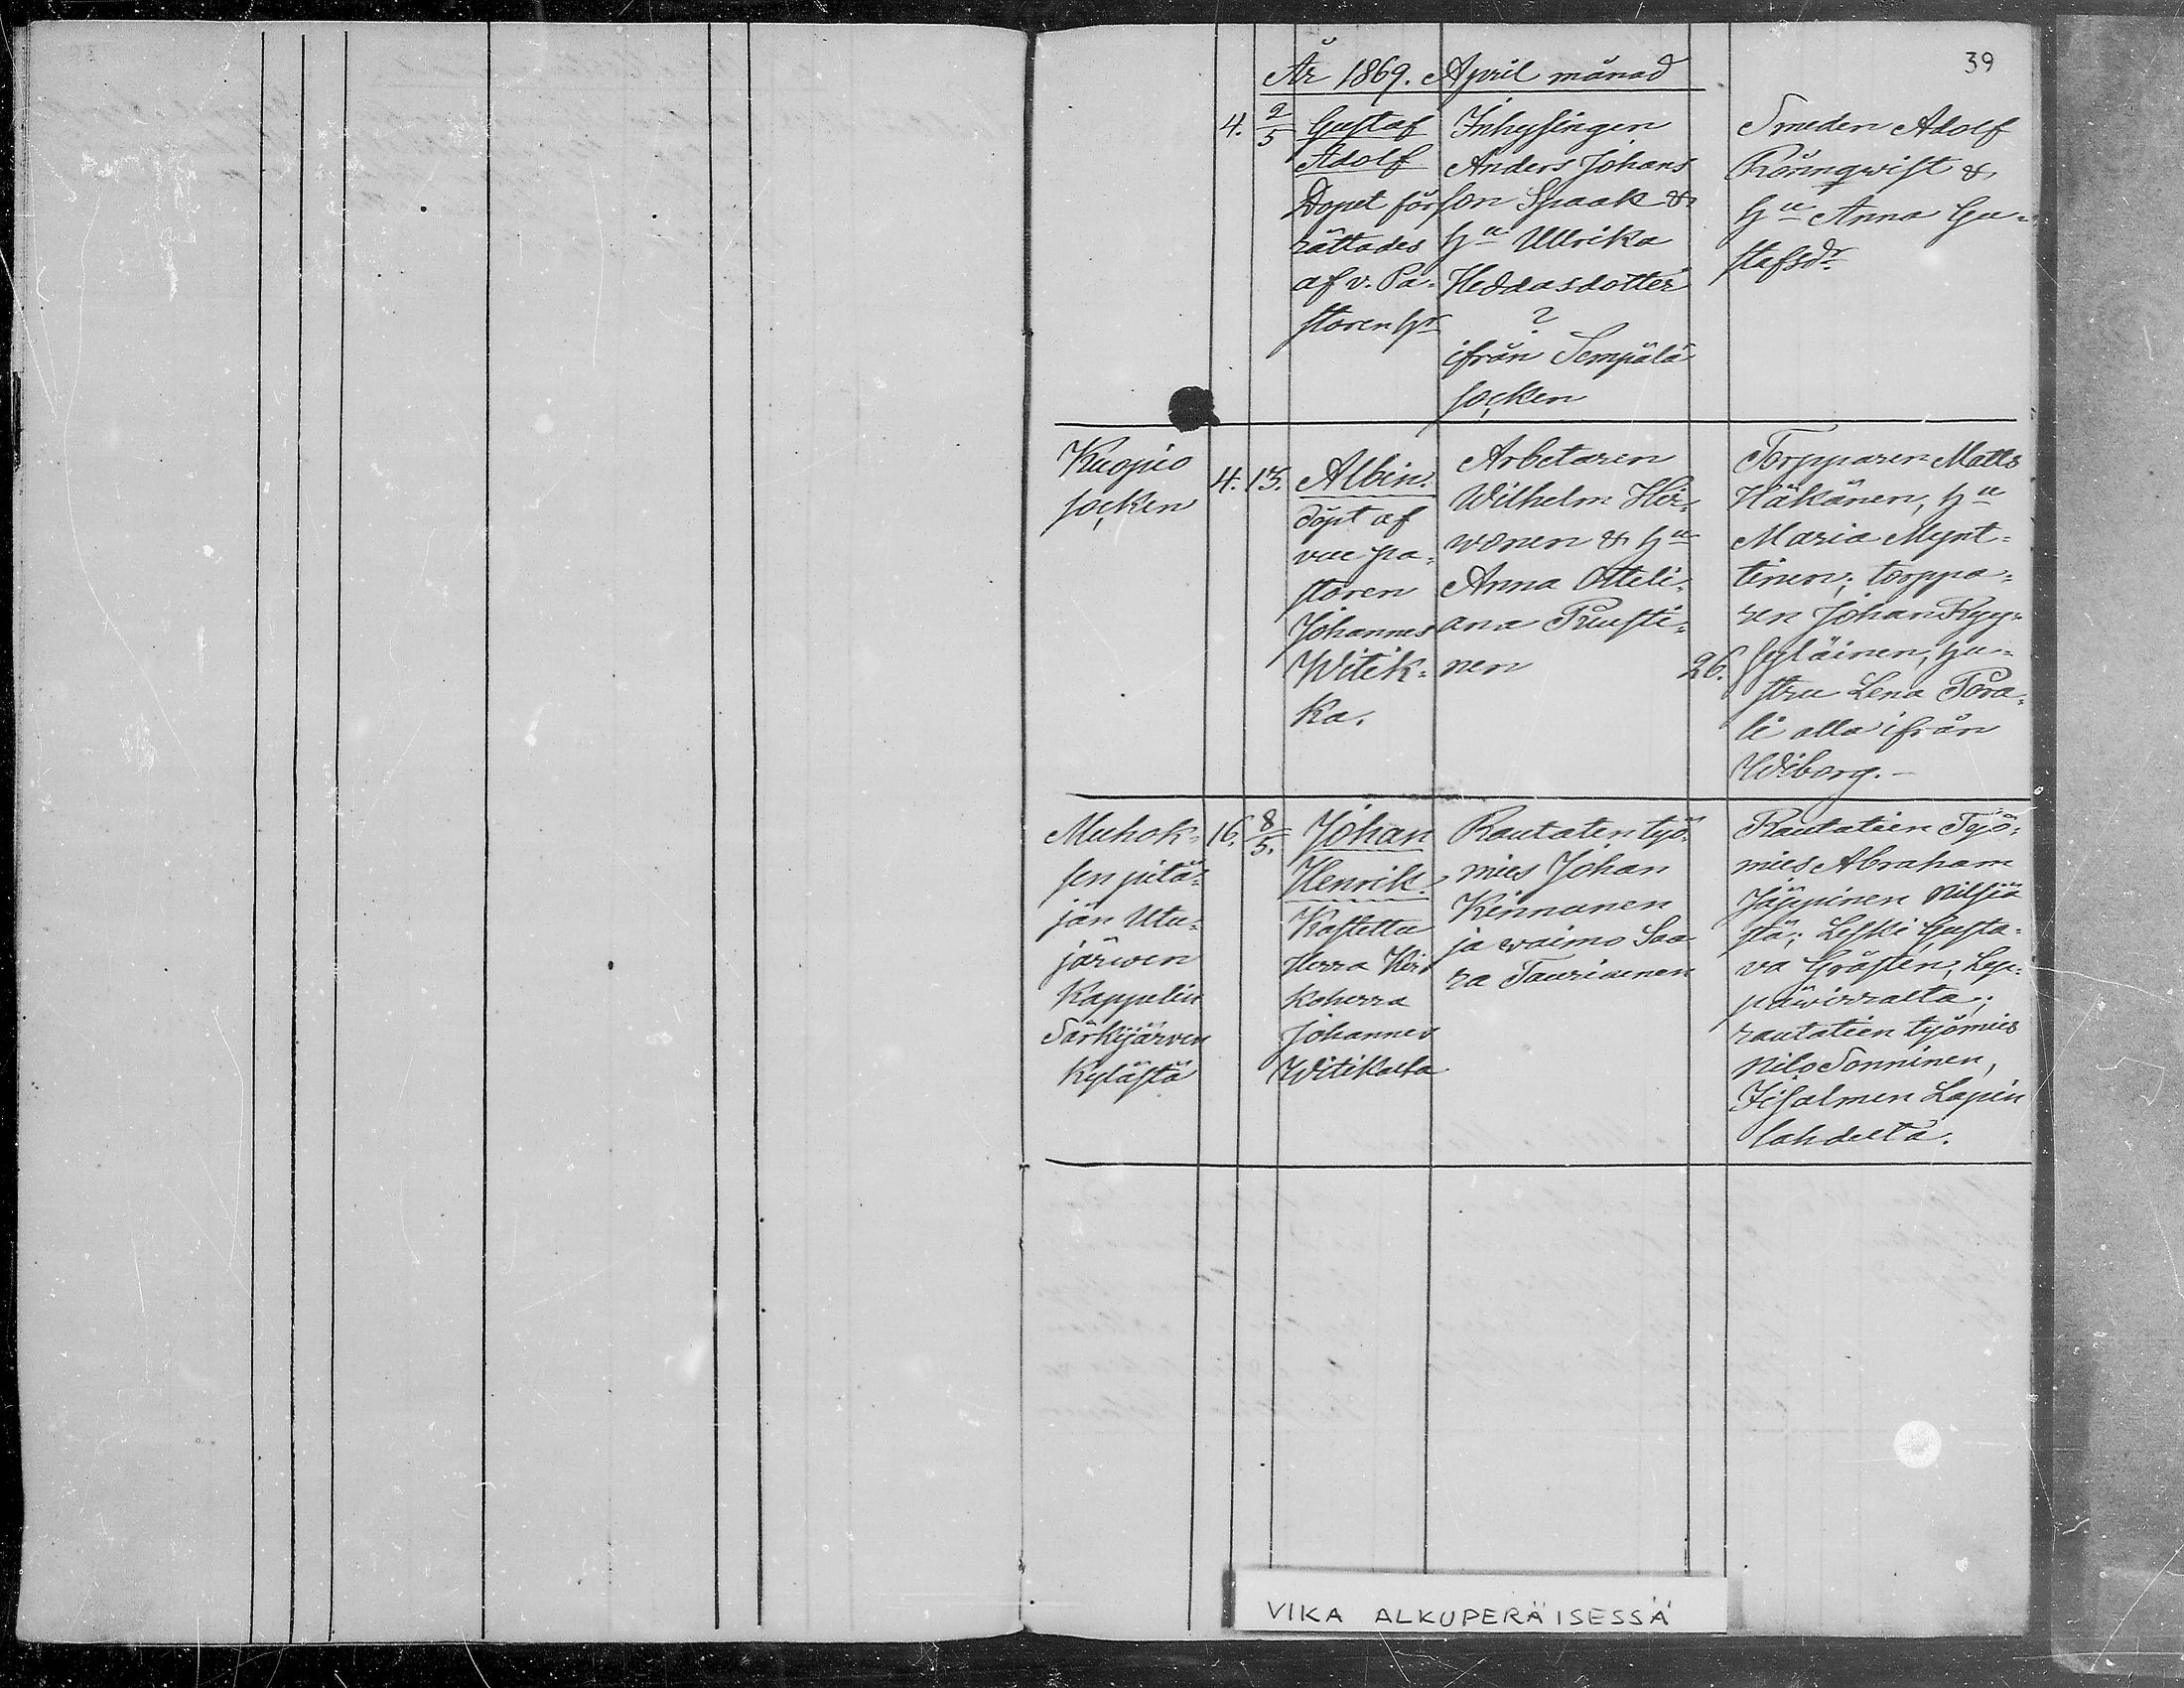 39
År 1869. April månad
4. 2/5 Gustaf
Adolf
Dopet för
rättades
af v. Pa-
storen Hr
Inhysingen
Anders Johans
son Spaak &
Hu Ullrika
Heddasdotter
?
ifrån Sempälä
socken
Smeden Adolf
Rönnqwist &
Hu Anna Gu-
stafsdr.
Kuopio
socken
4. 13. Albin.
döpt af
vice pa-
storen
Johannes
Witik-
ka.
Arbetaren
Wilhelm Hir-
wonen & Hu
Anna Otteli-
ana Puusti-
nen
26.
Torpparen Matts
Häkänen, Hu
Maria Mynt-
tinen; torppa-
ren Johan Ryy-
syläinen, hu-
stru Lena Pora-
li alla ifrån
Wiborg.-
Muhok-
sen pitä-
jän Uta-
järwen
Kappelin
Särkijärven
kylästä
16. 8/5. Johan
Henrik.
Kastettu
Herra Kir
koherra
Johannes
Witikalta
Rautatien työ-
mies Johan
Kinnunen
ja waimo Saa
ra Tauriainen
Rautatien Työ-
mies Abraham
Jäppinen Nilsiä
stä; Leski Gusta-
va Gråsten, Lep-
päwirralta;
rautatien työmies
Nils Sonninen,
Iisalmen Lapin
lahdelta.
VIKA ALKUPERÄISESSÄ